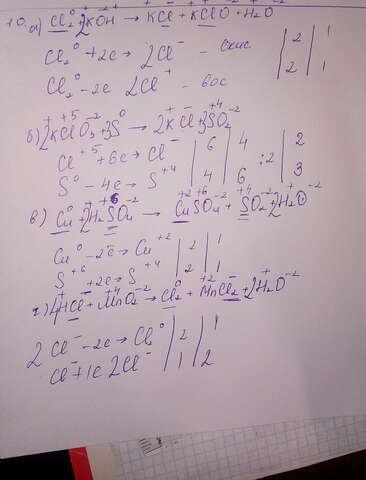 10. а) Cl₂⁰ + 2KOH → KCl + KClO + H₂O
Cl₂⁰ + 2e → 2Cl⁻ – окис | 2 | 1
Cl₂⁰ – 2e 2Cl⁺ – вос | 2 | 1
б) 2KClO₃ + 3S⁰ → 2KCl + 3SO₂
Cl⁺⁵ + 6e → Cl⁻ | 6 | 4 | :2 | 2
S⁰ – 4e → S⁺⁴ | 4 | 6 | 3
в) Cu⁰ + 2H₂SO₄ → CuSO₄ + SO₂ + 2H₂O
Cu⁰ – 2e → Cu⁺² | 2 | 1
S⁺⁶ + 2e → S⁺⁴ | 2 | 1
г) 4HCl + MnO₂ → Cl₂⁰ + MnCl₂ + 2H₂O
2Cl⁻ – 2e → Cl₂⁰ | 2 | 1
Cl + 1e 2Cl⁻ | 1 | 2